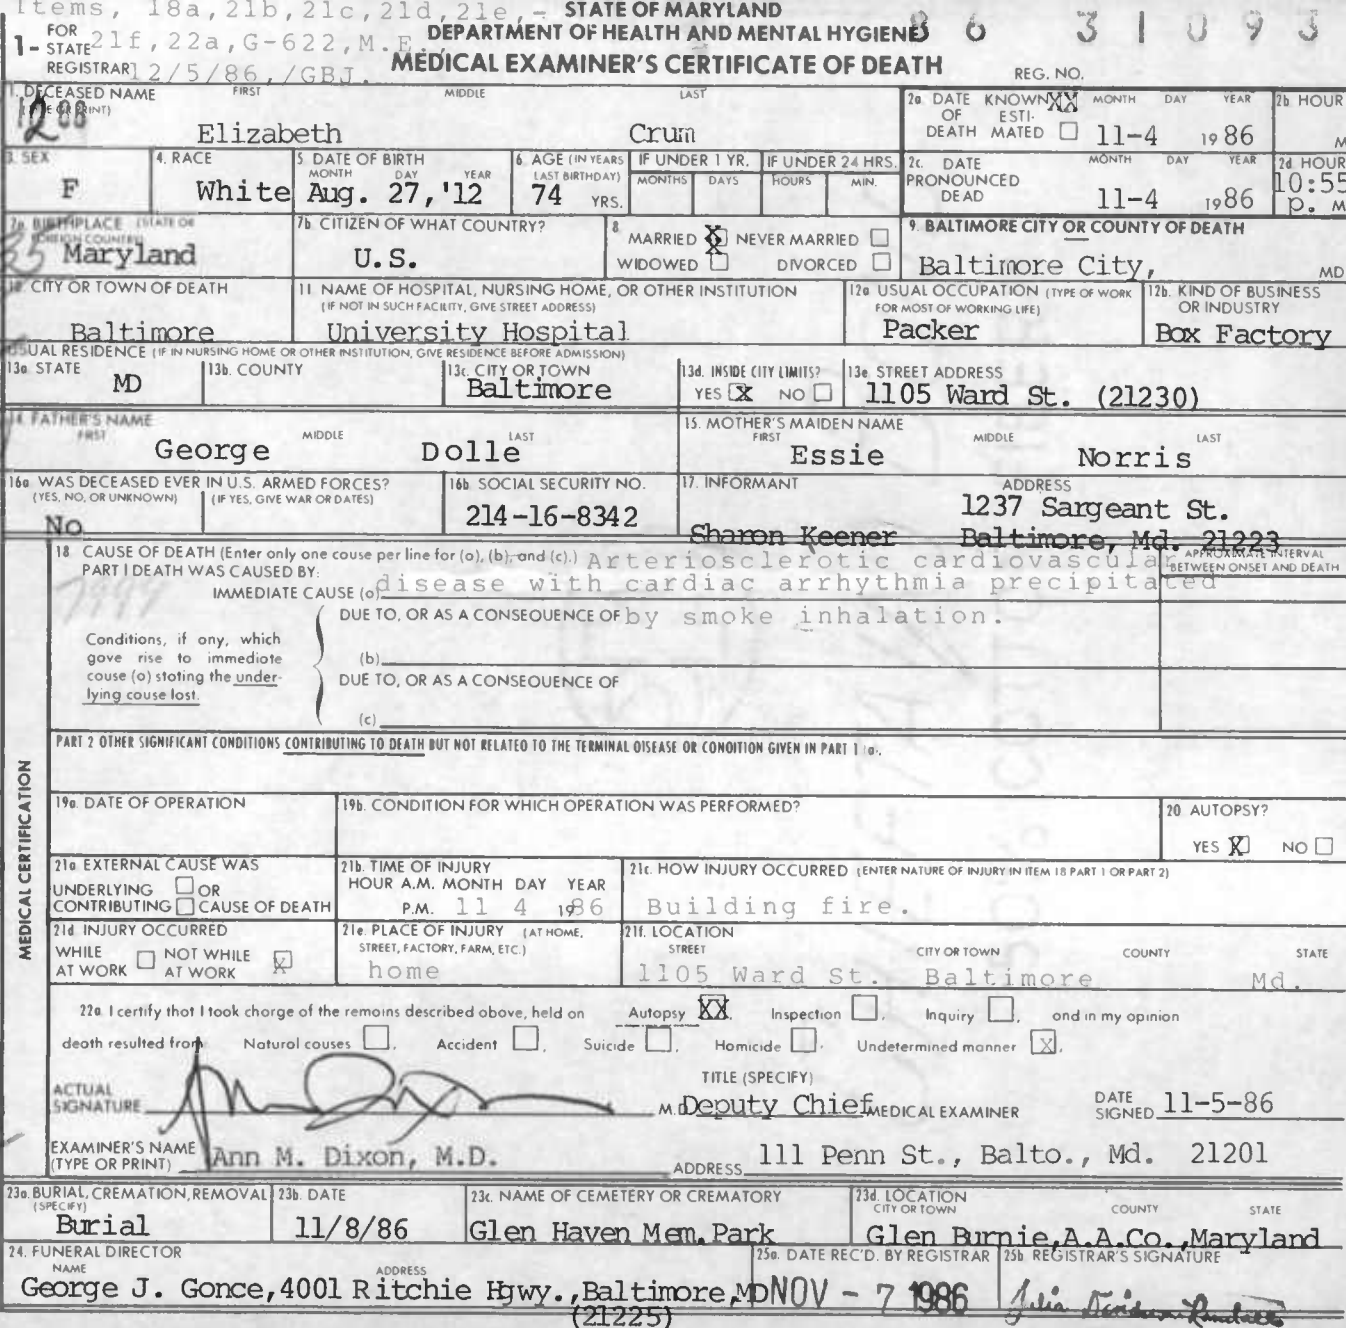 Items, 18a,21b,21c,21d,21e,- STATE OF MARYLAND
1- FOR STATE REGISTRAR 21f,22a,G-622,M.E. DEPARTMENT OF HEALTH AND MENTAL HYGIENE 86 31093
12/5/86,/GBJ. MEDICAL EXAMINER'S CERTIFICATE OF DEATH REG. NO.
1. DECEASED NAME (TYPE OR PRINT) FIRST MIDDLE LAST
Elizabeth Crum
2a. DATE OF DEATH KNOWN XX ESTIMATED ☐ MONTH DAY YEAR
11-4 1986
2b. HOUR M
3. SEX
F
4. RACE
White
5. DATE OF BIRTH MONTH DAY YEAR
Aug. 27,'12
6. AGE (IN YEARS LAST BIRTHDAY)
74 YRS.
IF UNDER 1 YR. MONTHS DAYS
IF UNDER 24 HRS. HOURS MIN.
2c. DATE PRONOUNCED DEAD MONTH DAY YEAR
11-4 1986
2d. HOUR
10:55 p. M
7a. BIRTHPLACE (STATE OR FOREIGN COUNTRY)
Maryland
7b. CITIZEN OF WHAT COUNTRY?
U.S.
8. MARRIED X NEVER MARRIED ☐
WIDOWED ☐ DIVORCED ☐
9. BALTIMORE CITY OR COUNTY OF DEATH
Baltimore City, MD
10. CITY OR TOWN OF DEATH
Baltimore
11. NAME OF HOSPITAL, NURSING HOME, OR OTHER INSTITUTION
(IF NOT IN SUCH FACILITY, GIVE STREET ADDRESS)
University Hospital
12a. USUAL OCCUPATION (TYPE OF WORK FOR MOST OF WORKING LIFE)
Packer
12b. KIND OF BUSINESS OR INDUSTRY
Box Factory
USUAL RESIDENCE (IF IN NURSING HOME OR OTHER INSTITUTION, GIVE RESIDENCE BEFORE ADMISSION)
13a. STATE
MD
13b. COUNTY
13c. CITY OR TOWN
Baltimore
13d. INSIDE CITY LIMITS?
YES X NO ☐
13e. STREET ADDRESS
1105 Ward St. (21230)
14. FATHER'S NAME FIRST MIDDLE LAST
George Dolle
15. MOTHER'S MAIDEN NAME FIRST MIDDLE LAST
Essie Norris
16a. WAS DECEASED EVER IN U.S. ARMED FORCES?
(YES, NO, OR UNKNOWN) (IF YES, GIVE WAR OR DATES)
No
16b. SOCIAL SECURITY NO.
214-16-8342
17. INFORMANT ADDRESS
1237 Sargeant St.
Sharon Keener Baltimore, Md. 21223
MEDICAL CERTIFICATION
18 CAUSE OF DEATH (Enter only one cause per line for (a), (b), and (c).) Arteriosclerotic cardiovascular
APPROXIMATE INTERVAL BETWEEN ONSET AND DEATH
PART I DEATH WAS CAUSED BY:
IMMEDIATE CAUSE (a) disease with cardiac arrhythmia precipitated
7999
DUE TO, OR AS A CONSEQUENCE OF by smoke inhalation.
Conditions, if any, which gave rise to immediate cause (a) stating the underlying cause last.
(b)
DUE TO, OR AS A CONSEQUENCE OF
(c)
PART 2 OTHER SIGNIFICANT CONDITIONS CONTRIBUTING TO DEATH BUT NOT RELATED TO THE TERMINAL DISEASE OR CONDITION GIVEN IN PART 1 (a).
19a. DATE OF OPERATION
19b. CONDITION FOR WHICH OPERATION WAS PERFORMED?
20 AUTOPSY?
YES X NO ☐
21a EXTERNAL CAUSE WAS
UNDERLYING ☐ OR
CONTRIBUTING ☐ CAUSE OF DEATH
21b. TIME OF INJURY
HOUR A.M. MONTH DAY YEAR
P.M. 11 4 1986
21c. HOW INJURY OCCURRED (ENTER NATURE OF INJURY IN ITEM 18 PART 1 OR PART 2)
Building fire.
21d INJURY OCCURRED
WHILE AT WORK ☐ NOT WHILE AT WORK X
21e. PLACE OF INJURY (AT HOME, STREET, FACTORY, FARM, ETC.)
home
21f. LOCATION
STREET CITY OR TOWN COUNTY STATE
1105 Ward St. Baltimore Md.
22a I certify that I took charge of the remains described above, held on Autopsy XX, Inspection ☐, Inquiry ☐, and in my opinion
death resulted from Natural causes ☐, Accident ☐, Suicide ☐, Homicide ☐, Undetermined manner X.
TITLE (SPECIFY)
ACTUAL SIGNATURE M.D. Deputy Chief MEDICAL EXAMINER DATE SIGNED 11-5-86
EXAMINER'S NAME (TYPE OR PRINT) Ann M. Dixon, M.D. ADDRESS 111 Penn St., Balto., Md. 21201
23a. BURIAL, CREMATION, REMOVAL (SPECIFY)
Burial
23b. DATE
11/8/86
23c. NAME OF CEMETERY OR CREMATORY
Glen Haven Mem. Park
23d. LOCATION CITY OR TOWN COUNTY STATE
Glen Burnie,A.A.Co.,Maryland
24. FUNERAL DIRECTOR
NAME ADDRESS
George J. Gonce,4001 Ritchie Hgwy.,Baltimore,MD
(21225)
25a. DATE REC'D. BY REGISTRAR
NOV - 7 1986
25b. REGISTRAR'S SIGNATURE
Julia Davidson-Randall